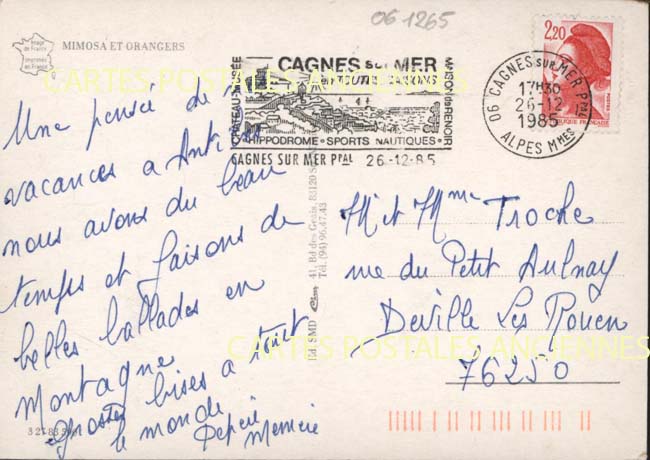 06 1265
Image
de France
Imprimée
en France
MIMOSA ET ORANGERS
CARTES POSTALES ANCIENNES
CHATEAU-MUSÉE
CAGNES SUR MER
EN TOUTES SAISONS
MAISON DE RENOIR
HIPPODROME - SPORTS NAUTIQUES
CAGNES SUR MER Ppal 26-12-85
06 CAGNES SUR MER Ppal
17H30
26-12
1985
ALPES Mmes
2,20
RÉPUBLIQUE FRANÇAISE
Une pensée de
vacances a Antibes
nous avons du beau
temps et faisons de
belles ballades en
montagne
Grosses bises a tout
le monde
Pepere Memere
Ed. SMD 41, Bd des
Tél. (94) 96.47.43
Mr et Mme Troche
rue du Petit Aulnay
Deville Les Rouen
76250
CARTES POSTALES ANCIENNES